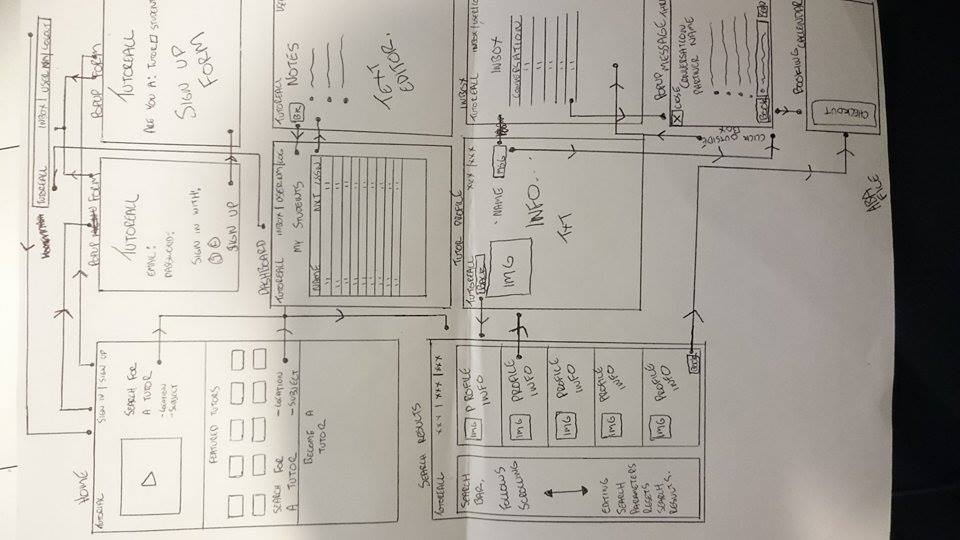 HOME
TUTORIAL
SIGN IN | SIGN UP
SEARCH FOR
A TUTOR
-LOCATION
-SUBJECT
FEATURED TUTORS
SEARCH FOR
A TUTOR
-LOCATION
-SUBJECT
BECOME A
TUTOR
POPUP FORM
TUTOREALL
EMAIL:
PASSWORD:
SIGN IN WITH:
SIGN UP
TUTOREALL
INBOX | USER NM | LOGOUT
POPUP FORM
TUTOREALL
ARE YOU A: TUTOR STUDENT
SIGN UP
FORM
DASHBOARD
TUTOREALL
INBOX | USER NM | LOG
MY STUDENTS
NAME
NXT LSSN
NOTES
TEXT
EDITOR.
SEARCH RESULTS
TUTOREALL
XXX | XXX | XXX
SEARCH
BAR,
FOLLOWS
SCROLLING
EDITING
SEARCH
PARAMETERS
RESETS
SEARCH
RESULTS.
IMG
PROFILE
INFO
IMG
PROFILE
INFO
IMG
PROFILE
INFO
IMG
PROFILE
INFO
IMG
PROFILE
INFO
BOOK
TUTOR PROFILE
TUTOREALL
XXX | XXX
BACK
NAME
MSG
IMG
INFO...
TXT
INBOX
TUTOREALL
INBOX
CONVERSATION
POPUP MESSAGE
X CLOSE
CONVERSATION
PARTNER NAME
BOOK
CLICK
OUTSIDE
BOX
BOOKING
CALENDAR
CHECKOUT